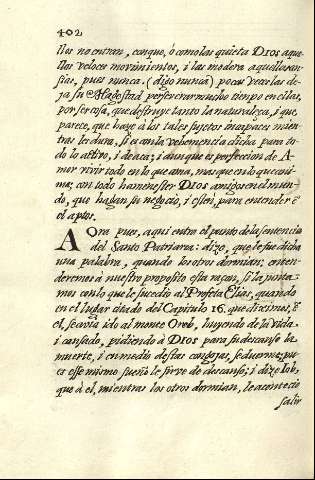 402
llos no entran, conque, ò como las quieta DIOS aque
llos veloces movimientos, i las modera aquellas an-
sias, pues nunca (digo nunca) pocas vezes las de-
ja su Magestad perseverar mucho tiempo en ellas,
por ser cosa, que destruye tanto la naturaleza, i que
parece, que haze à los tales sujetos incapaces mien-
tras les dura, si es en la vehemencia dicha para to-
do lo activo, i de aca; i aunque es perfeccion de A-
mor vivir todo en lo que ama, mas que en lo que ani-
ma; con todo ha menester DIOS amigos en el mun-
do, que hagan su negocio, i esten para entender è
el aptos.
AOra pues, aqui entre el punto de la sentencia
del Santo Patriarca: dize, que le fue dicha
una palabra, quando los otros dormian: enten-
deremos à nuestro proposito esta raçon, si la junta-
mos con lo que le sucediò al Profeta Elias, quando
en el lugar citado del Capitulo 16. que diximos, è
el, se avia ido al monte Oreb, huyendo de la vida
i cansado, pidiendo à DIOS para su descanso la
muerte, i en medio destas congojas, se duerme; pu-
es esse mismo sueño le sirve de descanso; i dize Iob,
que à el, mientras los otros dormian, le aconteciò
salir